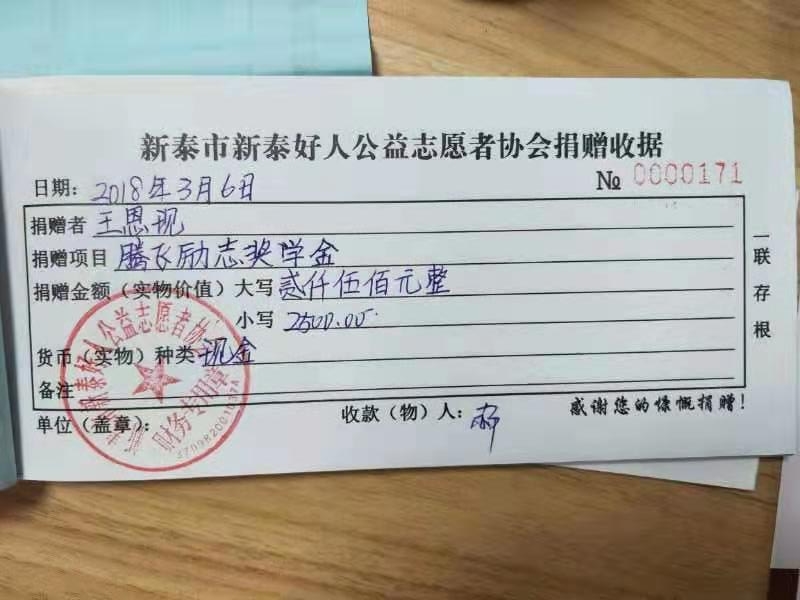 新泰市新泰好人公益志愿者协会捐赠收据
日期：2018年3月6日
№ 0000171
捐赠者 王恩现
捐赠项目 腾飞励志奖学金
捐赠金额（实物价值）大写 贰仟伍佰元整
小写 2500.00
货币（实物）种类 现金
备注
单位（盖章）：
收款（物）人：
感谢您的慷慨捐赠！
一联存根
新泰好人公益志愿者协
财务专用章